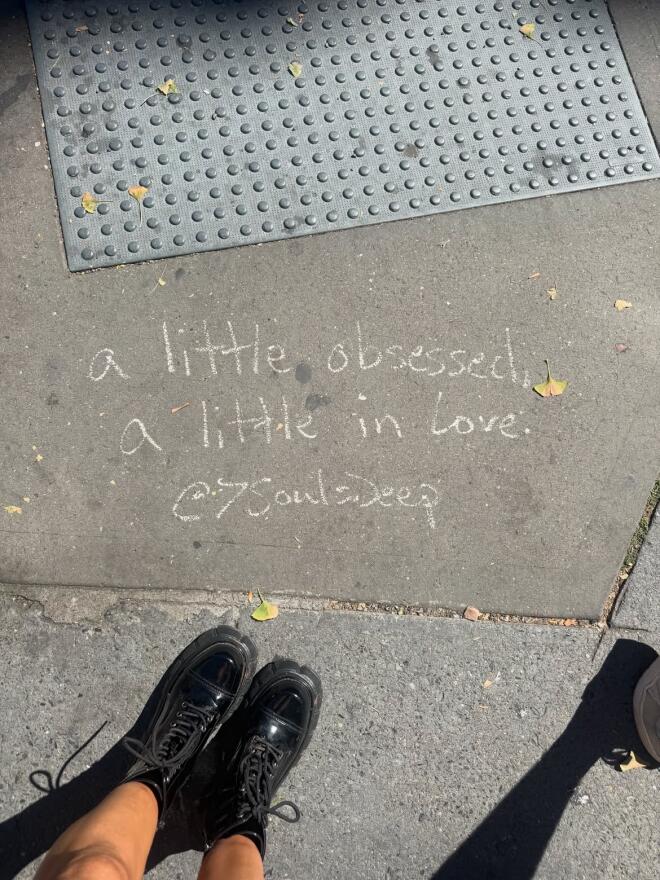 a little obsessed,
a little in love.
@7SoulsDeep